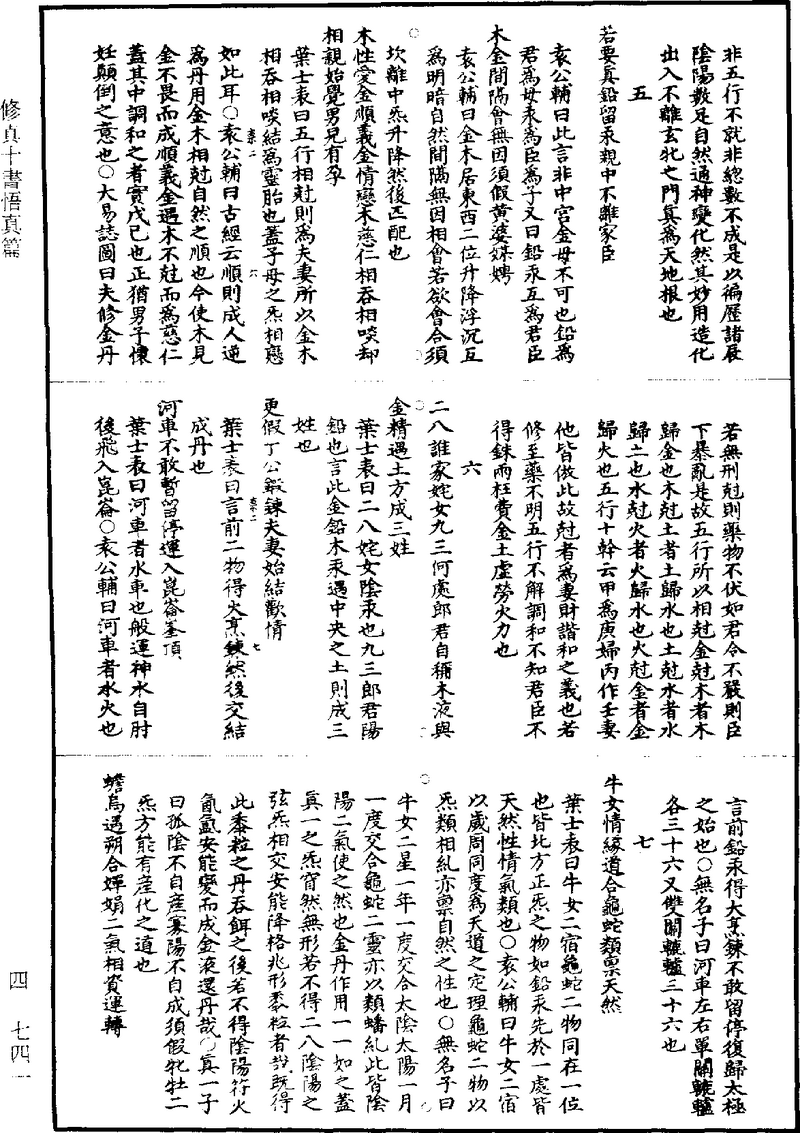 修真十書悟真篇
非五行不就非總數不成是以徧歷諸辰
陰陽數足自然通神變化然其妙用造化
出入不離玄牝之門真為天地根也
五
若要真鉛留汞親中不離家臣
袁公輔曰此言非中宮金母不可也鉛為
君為母汞為臣為子又曰鉛汞互為君臣
木金間隔會無因須假黃婆媒娉
袁公輔曰金木居東西二位升降浮沉互
為明暗自然間隔無因相會若欲會合須
坎離中炁升降然後匹配也
木性愛金順義金情戀木慈仁相吞相啖却
相親始覺男兒有孕
葉士表曰五行相尅則為夫妻所以金木
相吞相啖結為靈胎也蓋子母之炁相戀
如此耳○袁公輔曰古經云順則成人逆
為丹用金木相尅自然之順也今使木見
金不畏而成順義金遇木不尅而為慈仁
蓋其中調和之者實戊己也正猶男子懷
妊顛倒之意也○大易誌圖曰夫修金丹
若無刑尅則藥物不伏如君令不嚴則臣
下暴亂是故五行所以相尅金尅木者木
歸金也木尅土者土歸水也土尅水者水
歸土也水尅火者火歸水也火尅金者金
歸火也五行十幹云甲為庚婦丙作壬妻
他皆倣此故尅者為妻財諧和之義也若
修至藥不明五行不解調和不知君臣不
得銖兩枉費金土虛勞火力也
六
二八誰家姹女九三何處郎君自稱木液與
金精遇土方成三姓
葉士表曰二八姹女陰汞也九三郎君陽
鉛也言此金鉛木汞遇中央之土則成三
姓也
更假丁公鍛鍊夫妻始結歡情
葉士表曰言前二物得火烹鍊然後交結
成丹也
河車不敢暫留停運入崑崙峯頂
葉士表曰河車者水車也般運神水自肘
後飛入崑崙○袁公輔曰河車者水火也
言前鉛汞得大烹鍊不敢留停復歸太極
之始也○無名子曰河車左右單關轆轤
各三十六又雙關轆轤三十六也
七
牛女情緣道合龜蛇類禀天然
葉士表曰牛女二宿龜蛇二物同在一位
也皆北方正炁之物如鉛汞先於一處皆
天然性情氣類也○袁公輔曰牛女二宿
以歲周同度為天道之定理龜蛇二物以
炁類相糺亦禀自然之性也○無名子曰
牛女二星一年一度交合太陰太陽一月
一度交合龜蛇二靈亦以類蟠糺此皆陰
陽二氣使之然也金丹作用一一如之蓋
真一之炁窅然無形若不得二八陰陽之
弦炁相交安能降格兆形黍粒者哉既得
此黍粒之丹吞餌之後若不得陰陽符火
氤氳安能變而成金液還丹哉○真一子
曰孤陰不自産寡陽不自成須假牝牡二
炁方能有産化之道也
蟾烏遇朔合嬋娟二氣相資運轉
四 七四一